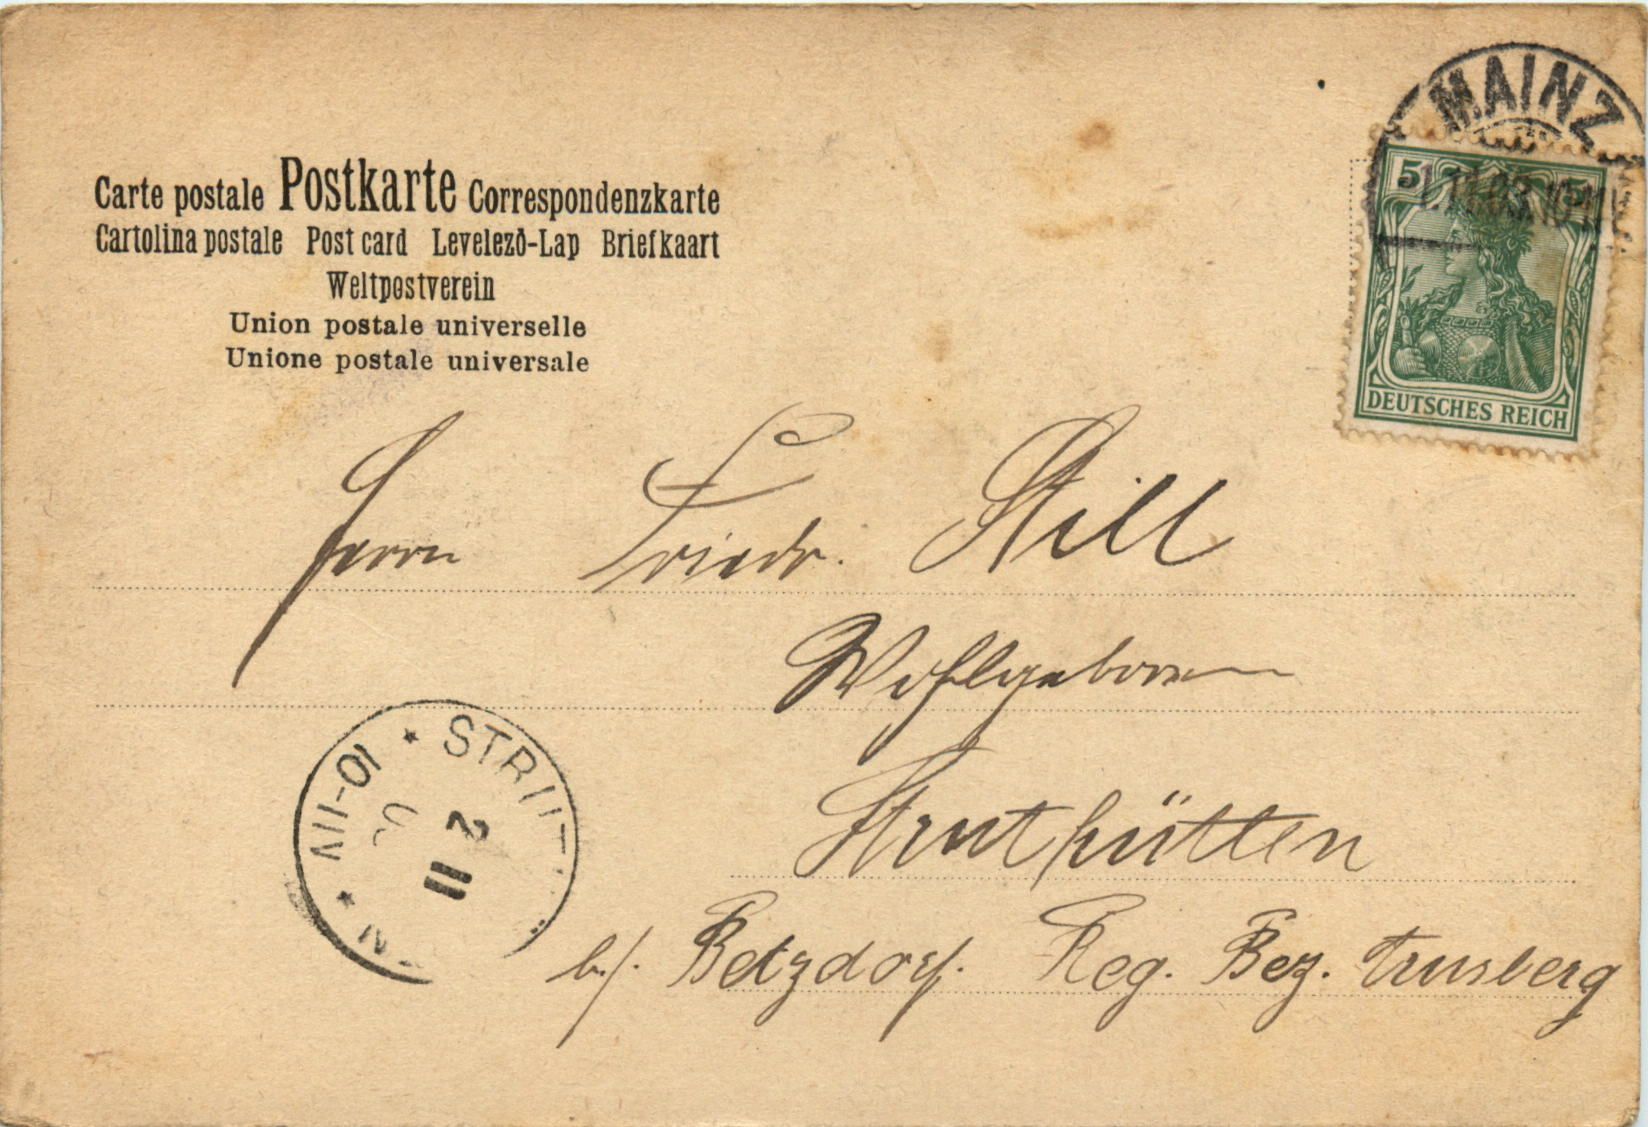 MAINZ
1.11.03. 10-11
5 5
DEUTSCHES REICH
Carte postale Postkarte Correspondenzkarte
Cartolina postale Post card Levelező-Lap Briefkaart
Weltpostverein
Union postale universelle
Unione postale universale
Herrn Friedr. Still
Wohlgeboren
Struthütten
b/. Betzdorf. Reg. Bez. Arnsberg
STRUT
2 11
10-11V